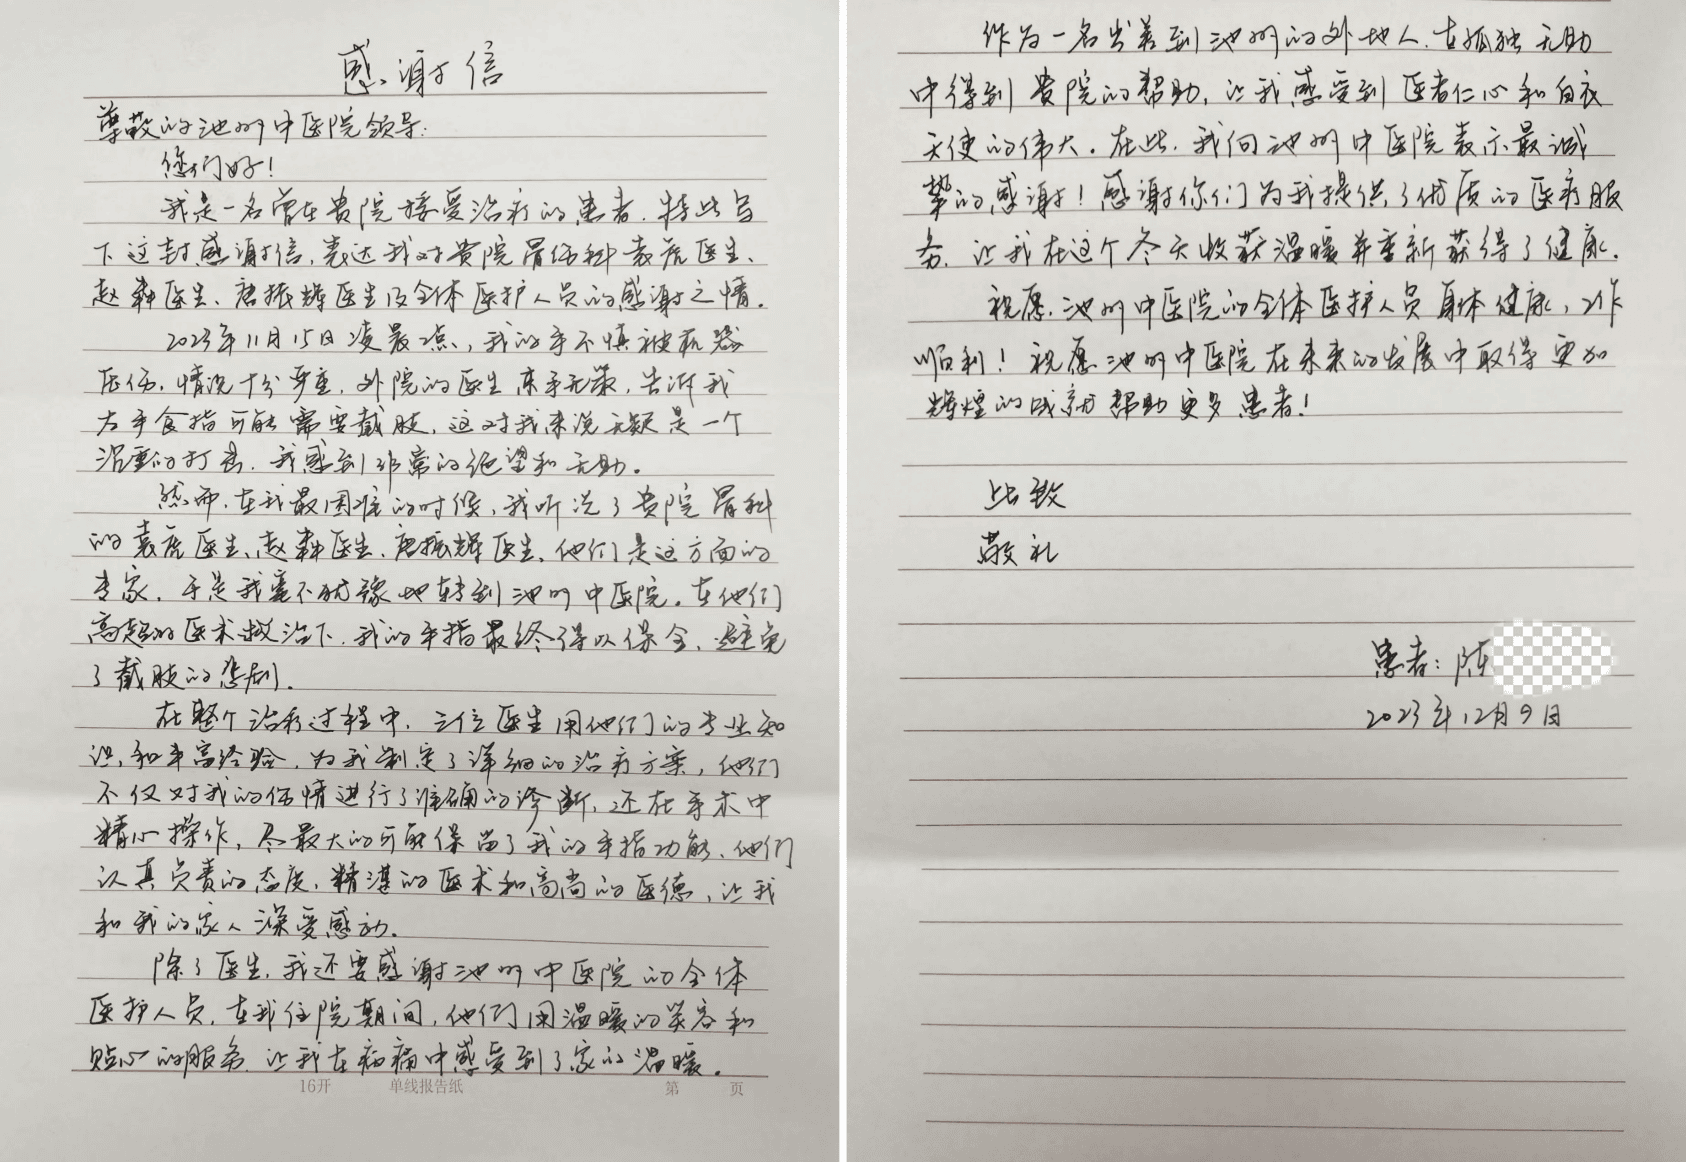 感谢信
尊敬的池州中医院领导:
您们好!
我是一名曾在贵院接受治疗的患者,特此写
下这封感谢信,表达我对贵院骨伤科袁虎医生、
赵犇医生、唐振辉医生及全体医护人员的感谢之情。
2023年11月15日凌晨2点,我的手不慎被机器
压伤,情况十分严重,外院的医生束手无策,告诉我
右手食指可能需要截肢,这对我来说无疑是一个
沉重的打击,我感到非常的绝望和无助。
然而,在我最困难的时候,我听说了贵院骨科
的袁虎医生、赵犇医生、唐振辉医生,他们是这方面的
专家,于是我毫不犹豫地转到池州中医院。在他们
高超的医术救治下,我的手指最终得以保全,避免
了截肢的悲剧。
在整个治疗过程中,三位医生用他们的专业知
识,和丰富经验,为我制定了详细的治疗方案,他们
不仅对我的伤情进行了准确的诊断,还在手术中
精心操作,尽最大的可能保留了我的手指功能,他们
认真负责的态度,精湛的医术和高尚的医德,让我
和我的家人深受感动。
除了医生,我还要感谢池州中医院的全体
医护人员,在我住院期间,他们用温暖的笑容和
贴心的服务,让我在病痛中感受到了家的温暖。
16开 单线报告纸 第 页
作为一名出差到池州的外地人,在孤独无助
中得到贵院的帮助,让我感受到医者仁心和白衣
天使的伟大。在此,我向池州中医院表示最诚
挚的感谢!感谢你们为我提供了优质的医疗服
务,让我在这个冬天收获温暖并重新获得了健康。
祝愿,池州中医院的全体医护人员身体健康,工作
顺利!祝愿池州中医院在未来的发展中取得更加
辉煌的成就帮助更多患者!
此致
敬礼
患者:陈
2023年12月9日